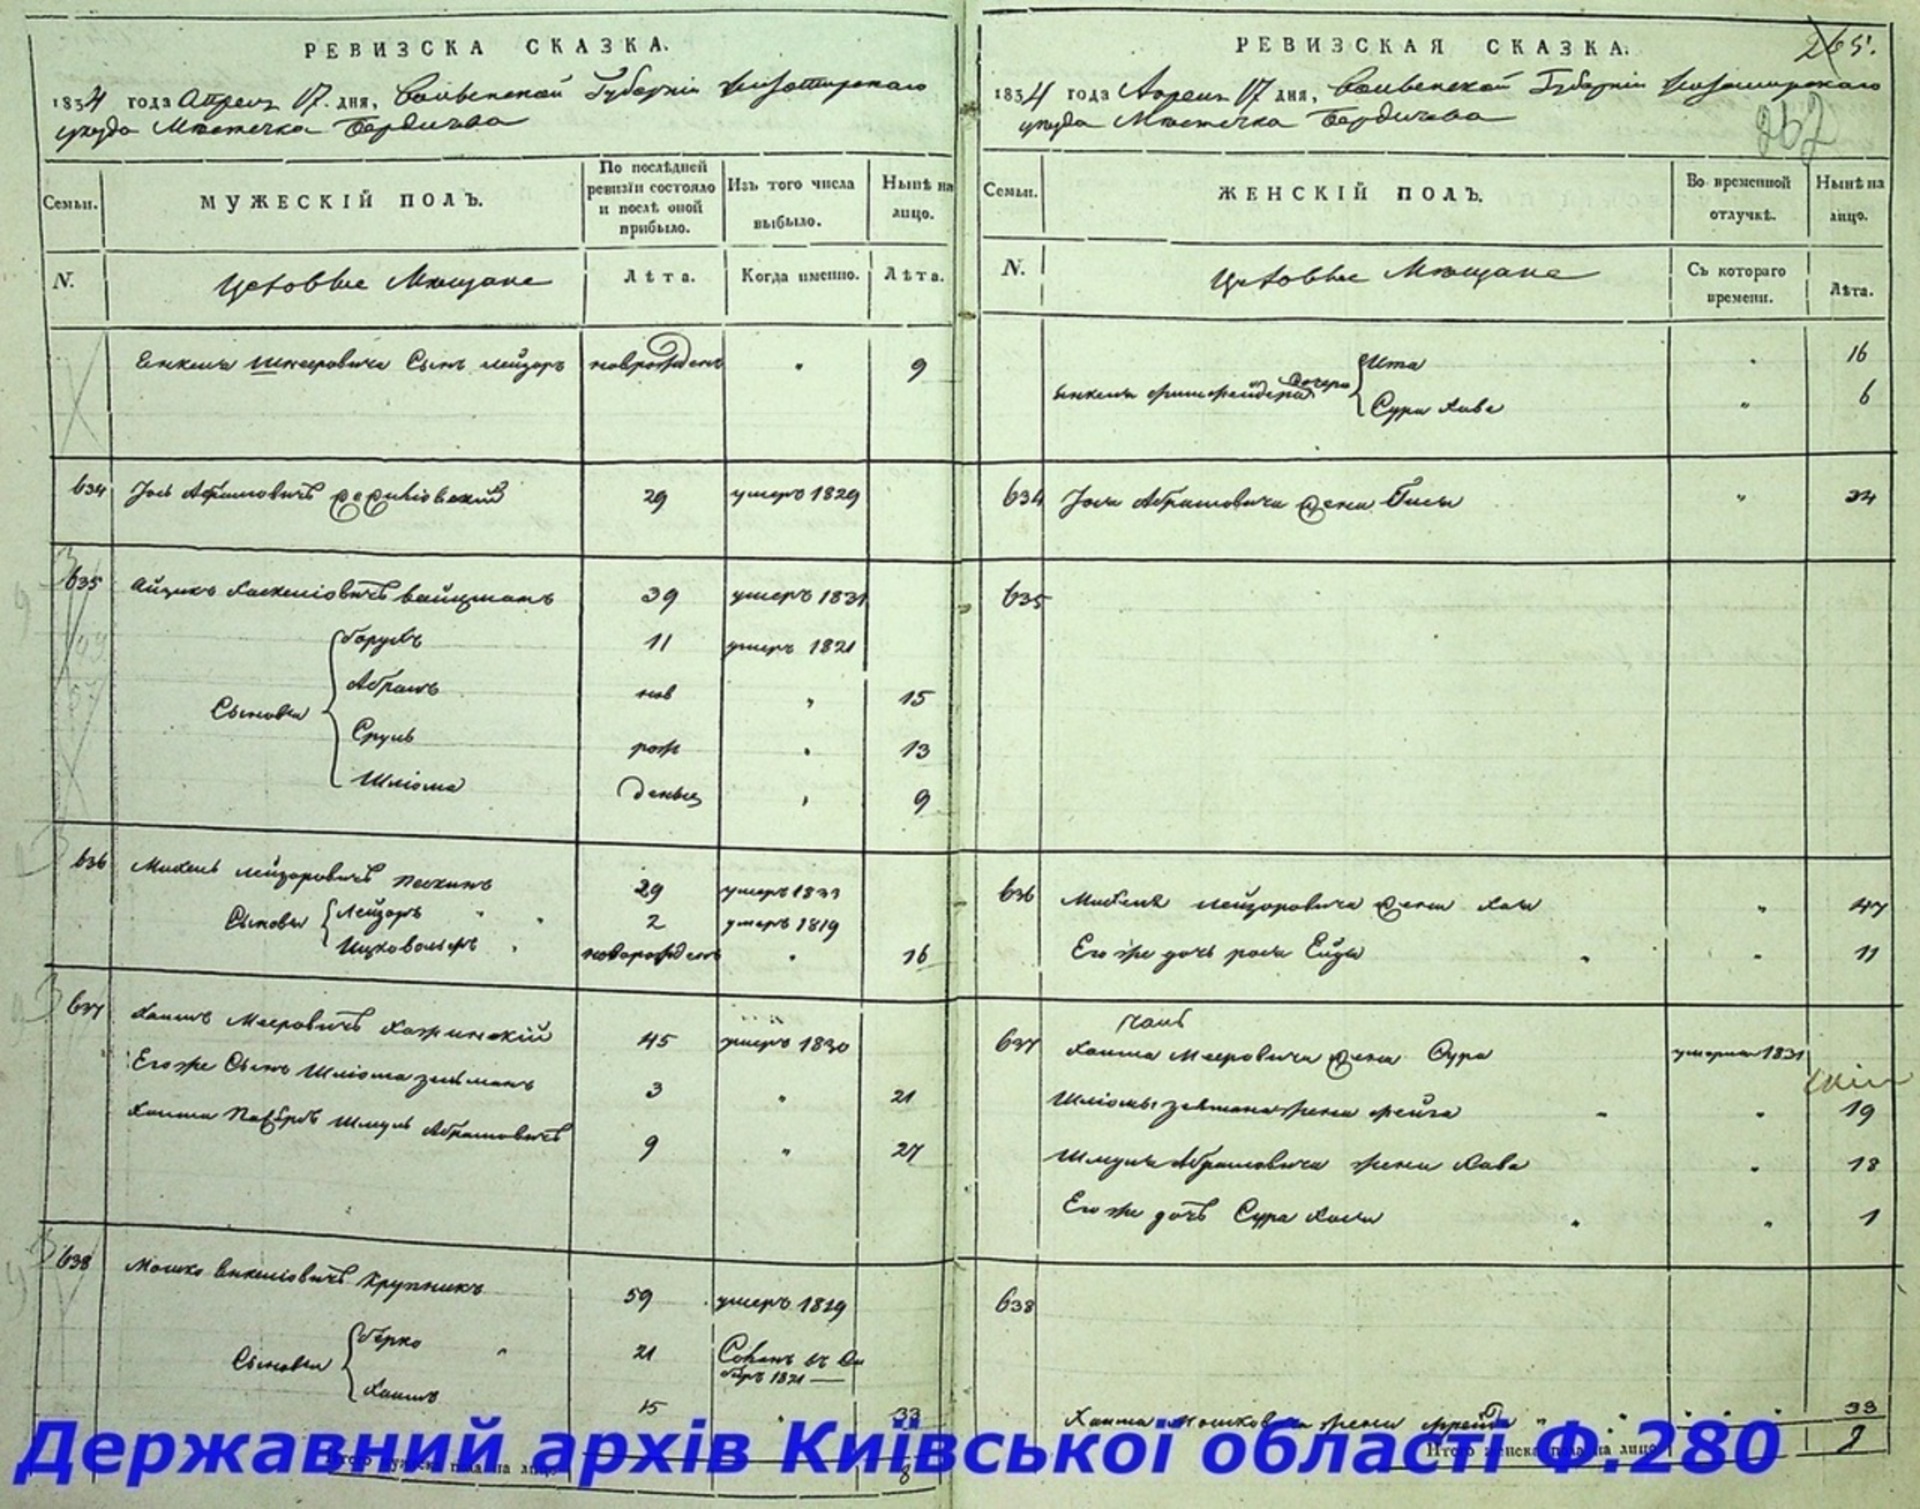 РЕВИЗСКА СКАЗКА.
1834 года Апреля 17 дня, Волынской Губернии Житомирскаго
уезда Местечка Бердичева
Семьи.
МУЖЕСКІЙ ПОЛЪ.
По послѣдней
ревизіи состояло
и послѣ оной
прибыло.
Изъ того числа
выбыло.
Нынѣ на
лицо.
N.
Цеховые Мещане
Лѣта.
Когда именно.
Лѣта.
Сынъ Лейзоръ новорожденъ " 9
634 Іось Абрамовичъ 29 умеръ 1829
635 Айзикъ Хаскеліовичъ Вайцманъ 39 умеръ 1831
Борухъ 11 умеръ 1821
Абрамъ нов " 15
Сыновья
Сруль рож " 13
Шліома денные " 9
636 Михель Лейзоровичъ Пескинъ 29 умеръ 1833
Сыновья Лейзоръ " " 2 умеръ 1819
Ицковольфъ " новорожденъ " 16
637 Хаимъ Мееровичъ Хажинскій 45 умеръ 1830
Его же Сынъ Шліома Зельманъ 3 " 21
Хаима Шмуль Абрамовичъ 9 " 27
638 Мошко Янкеліовичъ Крупникъ 59 умеръ 1829
Берко " 21
Сыновья
1821
Хаимъ 15 " 33
Итого мужеска пола на лицо 8
РЕВИЗСКАЯ СКАЗКА.
265.
1834 года Апреля 17 дня, Волынской Губерніи Житомирскаго
уезда Местечка Бердичева
267
Семьи.
ЖЕНСКІЙ ПОЛЪ.
Во временной
отлучкѣ.
Нынѣ на
лицо.
N.
Цеховые Мещане
Съ котораго
времени.
Лѣта.
Ита " 16
дочери
Сура Хава " 6
634 Іося Абрамовича жена Бися " 34
635
636 Михеля Лейзоровича жена Хая " 47
Его же дочь Рося Ейдя " " 11
637 Хаима Мееровича жена Сура умерла 1831
Шліомы Зельмана жена Фейга " " 19
Шмуля Абрамовича жена Хава " 18
Его же дочь Сура Хася " " 1
638
Хаима Мошковича жена Фрейда " " " " " 33
Итого женска пола на лицо 8
Державний архів Київської області Ф.280